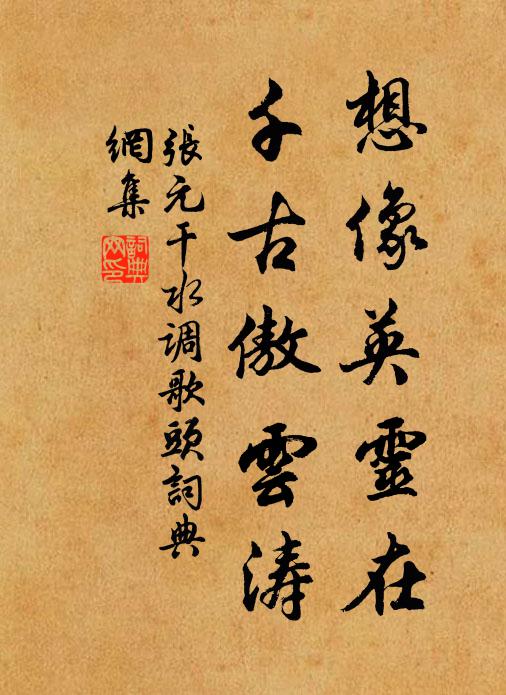 想像英靈在
千古傲雲濤
張元干水調歌頭詞典
網集
詞典
网印